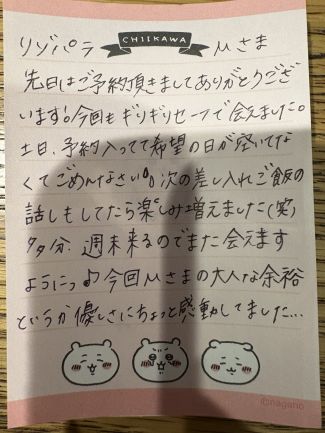 リゾパラ CHIIKAWA Mさま
先日はご予約頂きましてありがとうござ
います!今回もギリギリセーフで会えました。
土日、予約入ってて希望の日が空いてな
くてごめんなさい 次の差し入れご飯の
話しもしてたら楽しみ増えました(笑)
多分、週末来るのでまた会えます
ようにっ♪今回Mさまの大人な余裕
というか優しさにちょっと感動してました...
©nagano